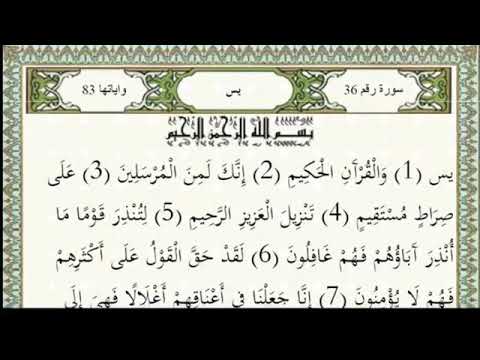 سورة رقم 36 يس واياتها 83
بسم الله الرحمن الرحيم
يس (1) وَالْقُرْآَنِ الْحَكِيمِ (2) إِنَّكَ لَمِنَ الْمُرْسَلِينَ (3) عَلَى
صِرَاطٍ مُسْتَقِيمٍ (4) تَنْزِيلَ الْعَزِيزِ الرَّحِيمِ (5) لِتُنْذِرَ قَوْمًا مَا
أُنْذِرَ آَبَاؤُهُمْ فَهُمْ غَافِلُونَ (6) لَقَدْ حَقَّ الْقَوْلُ عَلَى أَكْثَرِهِمْ
فَهُمْ لَا يُؤْمِنُونَ (7) إِنَّا جَعَلْنَا فِي أَعْنَاقِهِمْ أَغْلَالًا فَهِيَ إِلَى